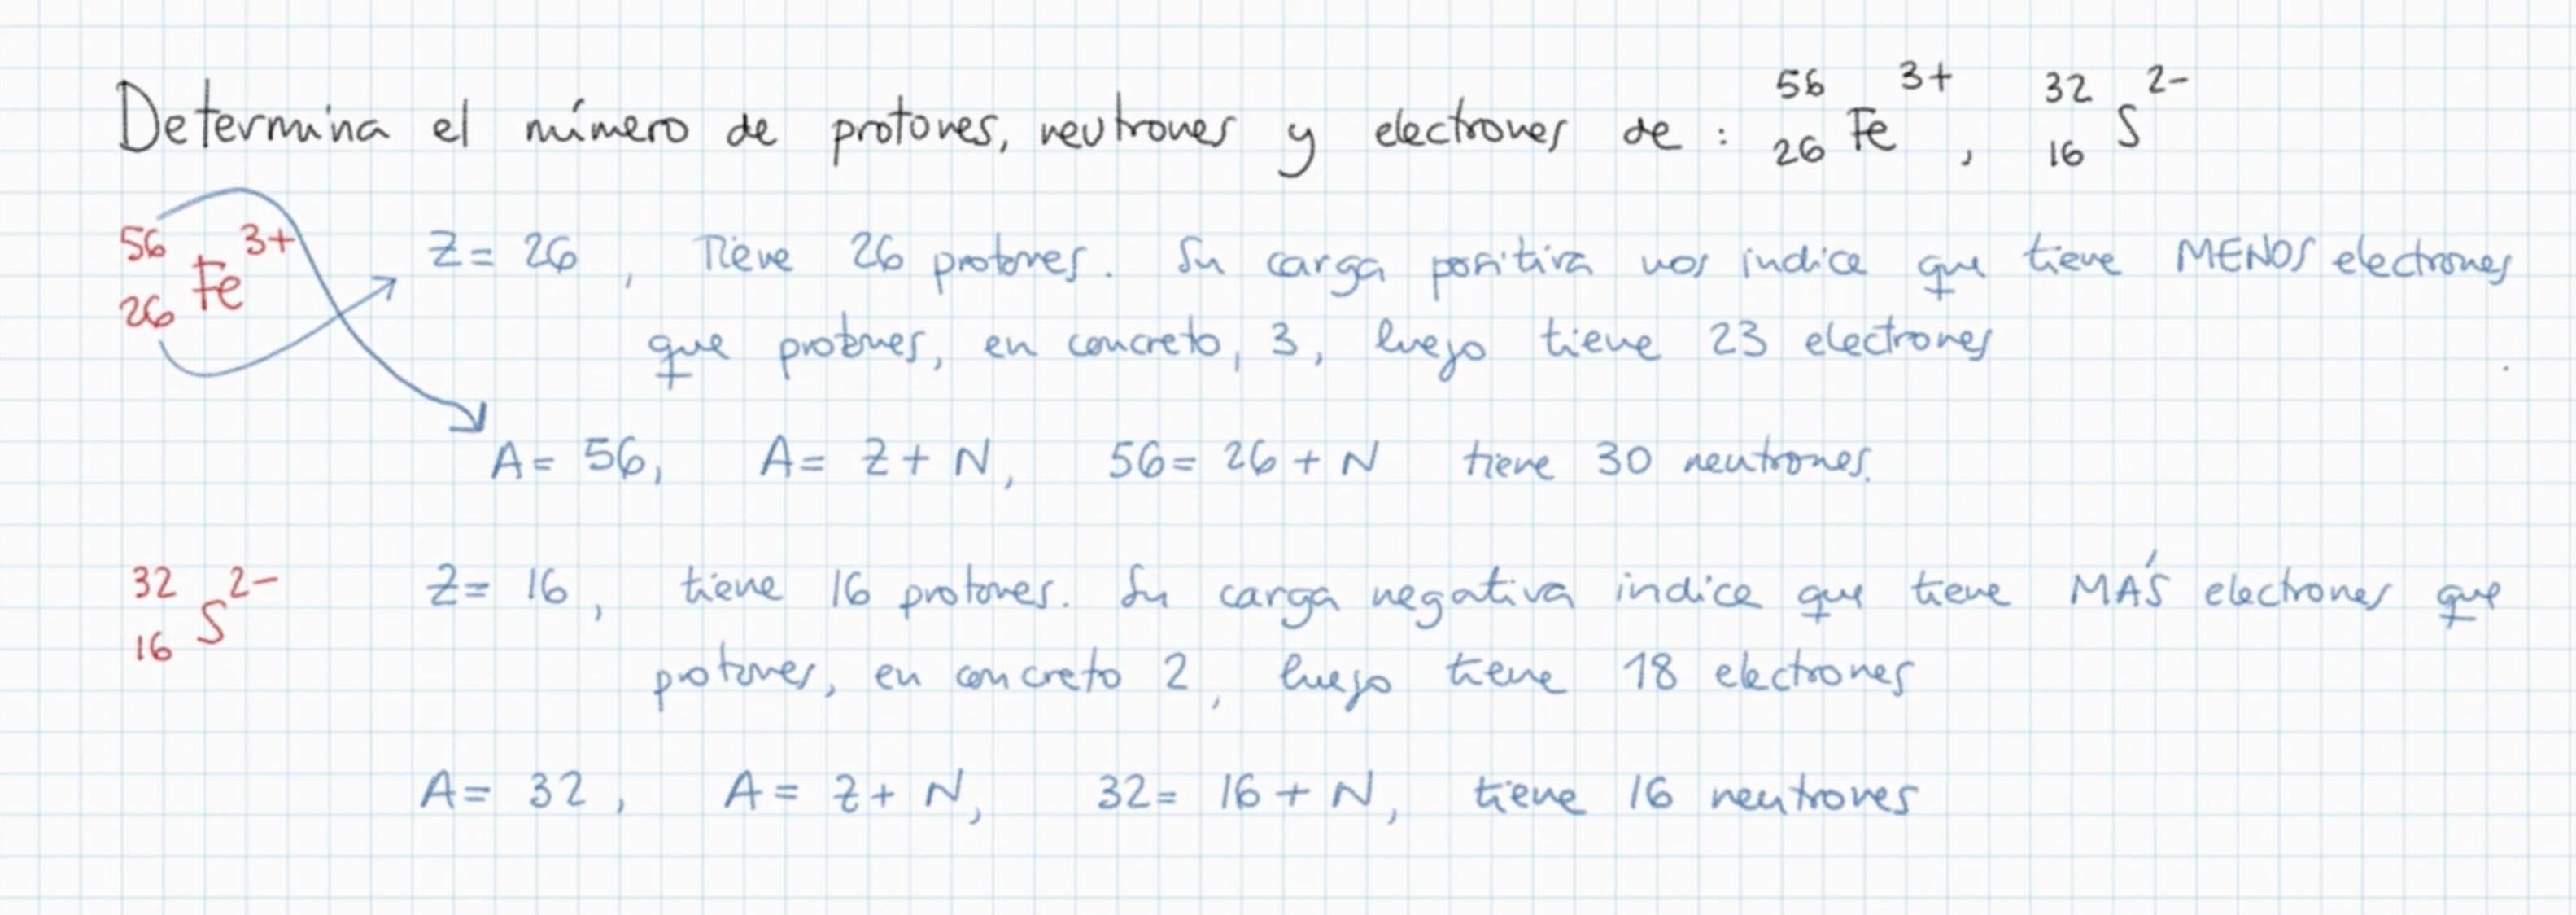 Determina el número de protones, neutrones y electrones de : ⁵⁶₂₆Fe³⁺, ³²₁₆S²⁻
⁵⁶₂₆Fe³⁺ Z= 26, Tiene 26 protones. Su carga positiva nos indica que tiene MENOS electrones
que protones, en concreto, 3, luego tiene 23 electrones.
A= 56, A= Z+N, 56= 26+N tiene 30 neutrones.
³²₁₆S²⁻ Z= 16, tiene 16 protones. Su carga negativa indica que tiene MÁS electrones que
protones, en concreto 2, luego tiene 18 electrones
A= 32, A= Z+N, 32= 16+N, tiene 16 neutrones